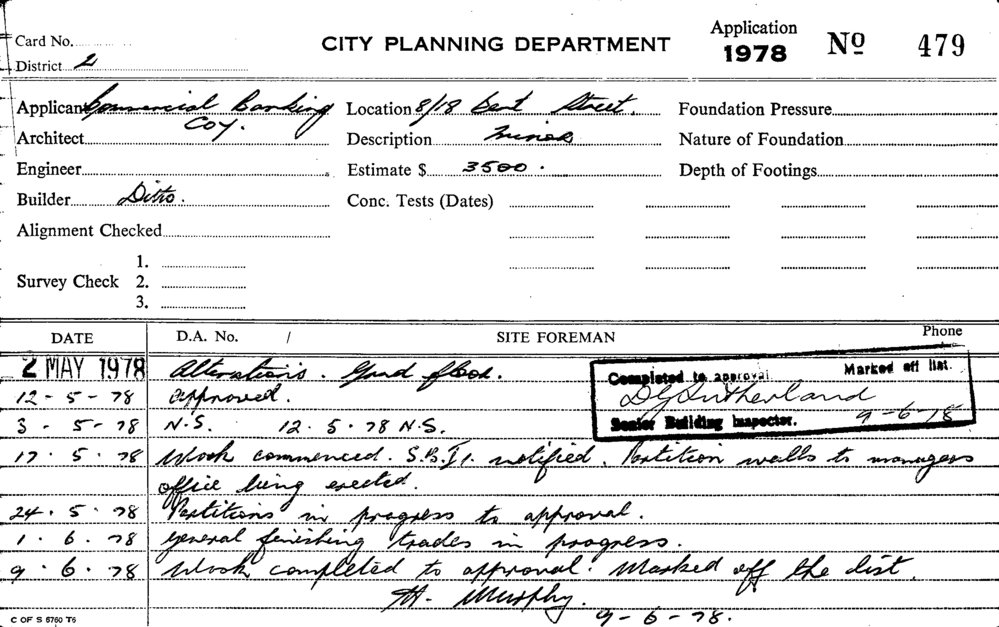 Card No.
District 2
CITY PLANNING DEPARTMENT
Application
1978
No 479
Applicant Commercial Banking
Coy.
Location 8/18 Bent Street.
Foundation Pressure
Architect
Description Minor
Nature of Foundation
Engineer
Estimate $ 3500.
Depth of Footings
Builder Ditto.
Conc. Tests (Dates)
Alignment Checked
Survey Check
1.
2.
3.
DATE D.A. No. / SITE FOREMAN Phone
2 MAY 1978 Alterations. Grnd floor.
Completed to approval Marked off list.
D G Sutherland
Senior Building Inspector. 9-6-78
12-5-78 approved.
3-5-78 N.S. 12.5.78 N.S.
17.5.78 Work commenced. S.B.I. notified. Partition walls to managers
office being erected.
24.5.78 Partitions in progress to approval.
1.6.78 General finishing trades in progress.
9.6.78 Work completed to approval. Marked off the list.
H. Murphy.
9-6-78.
C OF S 6760 T6